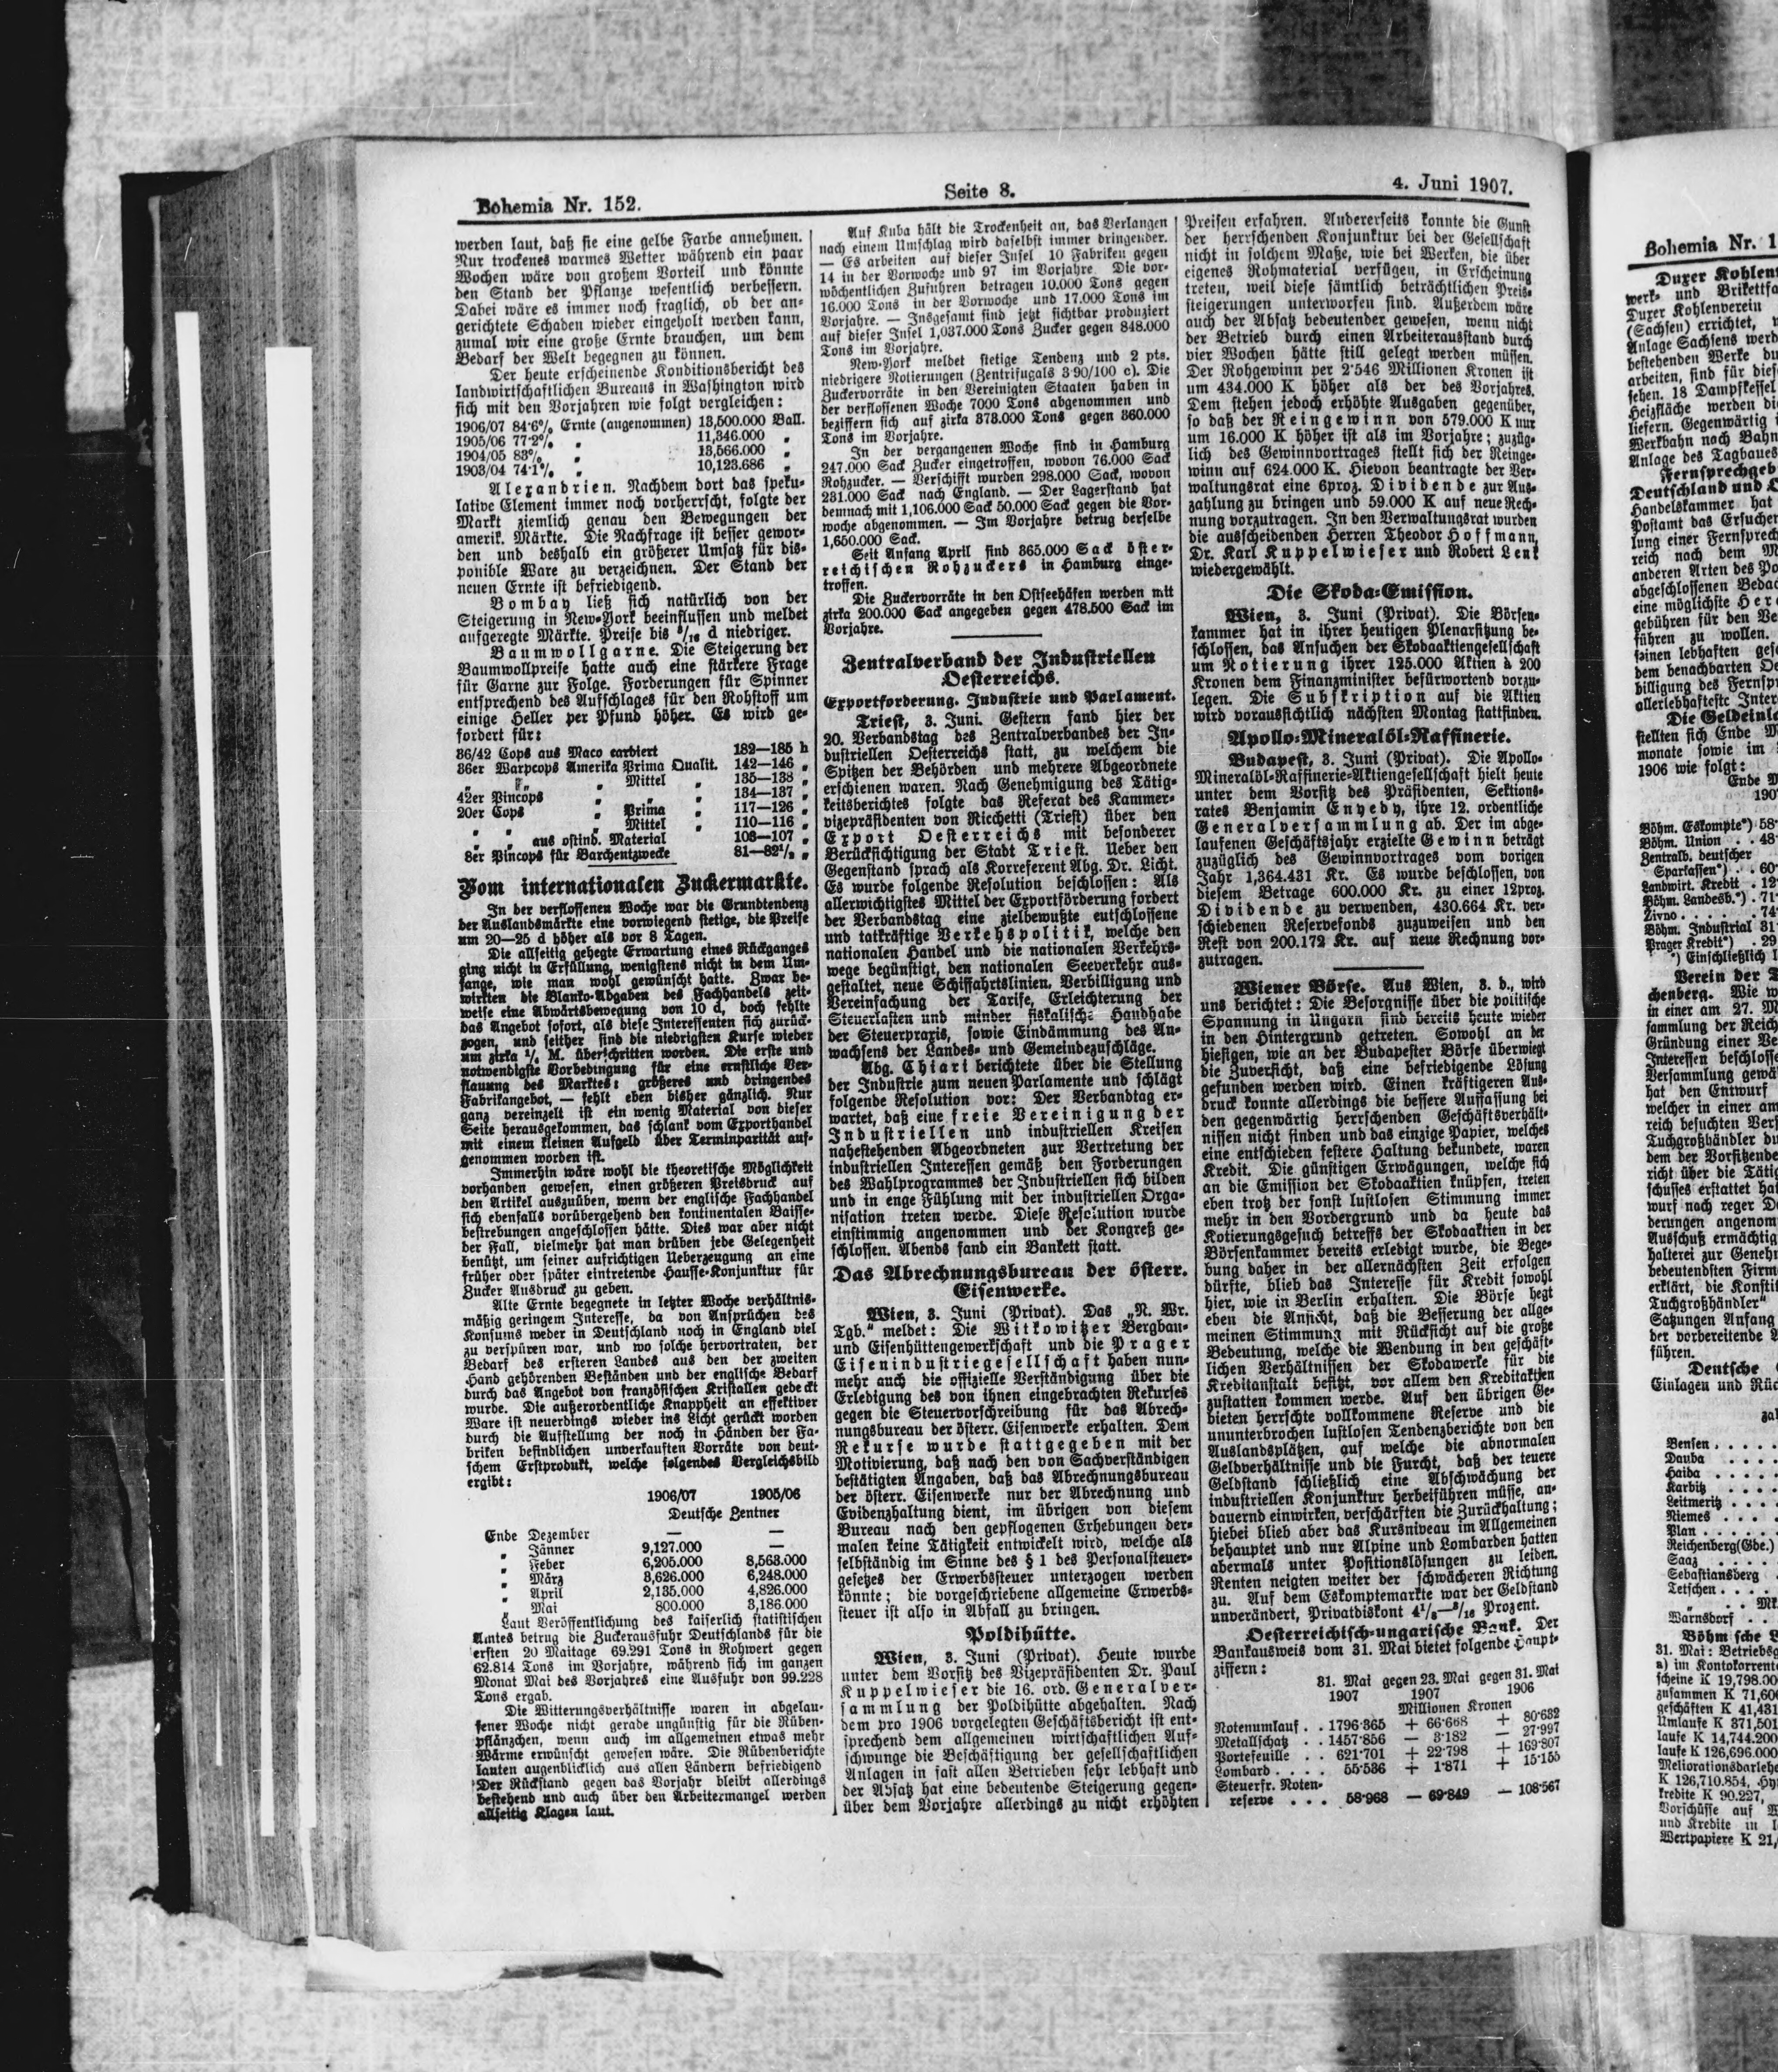 Bohemia Nr. 152.
Seite 8.
4. Juni 1907.
werden laut, daß sie eine gelbe Farbe annehmen.
Nur trockenes warmes Wetter während ein paar
Wochen wäre von großem Vorteil und könnte
den Stand der Pflanze wesentlich verbessern.
Dabei wäre es immer noch fraglich, ob der an-
gerichtete Schaden wieder eingeholt werden kann,
zumal wir eine große Ernte brauchen, um dem
Bedarf der Welt begegnen zu können.
Der heute erscheinende Konditionsbericht des
landwirtschaftlichen Bureaus in Washington wird
sich mit den Vorjahren wie folgt vergleichen:
1906/07 84·6% Ernte (angenommen) 13,500.000 Ball.
1905/06 77·2% „ 11,346.000 „
1904/05 83% „ 13,566.000 „
1903/04 74·1% „ 10,123.686 „
Alexandrien. Nachdem dort das speku-
lative Element immer noch vorherrscht, folgte der
Markt ziemlich genau den Bewegungen der
amerik. Märkte. Die Nachfrage ist besser gewor-
den und deshalb ein größerer Umsatz für dis-
ponible Ware zu verzeichnen. Der Stand der
neuen Ernte ist befriedigend.
Bombay ließ sich natürlich von der
Steigerung in New-York beeinflussen und meldet
aufgeregte Märkte. Preise bis d niedriger.
Baumwollgarne. Die Steigerung der
Baumwollpreise hatte auch eine stärkere Frage
für Garne zur Folge. Forderungen für Spinner
entsprechend des Aufschlages für den Rohstoff um
einige Heller per Pfund höher. Es wird ge-
fordert für:
36/42 Cops aus Maco carbiert 182—185 h
36er Warpcops Amerika Prima Qualit. 142—146 „
„ „ „ Mittel „ 135—138 „
42er Pincops „ „ „ 134—137 „
20er Cops „ Prima „ 117—126 „
„ „ „ Mittel „ 110—116 „
„ „ aus ostind. Material 103—107 „
8er Pincops für Barchentzwecke 81—82½ „
Vom internationalen Zuckermarkte.
In der verflossenen Woche war die Grundtendenz
der Auslandsmärkte eine vorwiegend stetige, die Preise
um 20—25 d höher als vor 8 Tagen.
Die allseitig gehegte Erwartung eines Rückganges
ging nicht in Erfüllung, wenigstens nicht in dem Um-
fange, wie man wohl gewünscht hatte. Zwar be-
wirkten die Blanko-Abgaben des Fachhandels zeit-
weise eine Abwärtsbewegung von 10 d, doch fehlte
das Angebot sofort, als diese Interessenten sich zurück-
zogen, und seither sind die niedrigsten Kurse wieder
um zirka M. überschritten worden. Die erste und
notwendigste Vorbedingung für eine ernstliche Ver-
flauung des Marktes: größeres und bringendes
Fabrikangebot, — fehlt eben bisher gänzlich. Nur
ganz vereinzelt ist ein wenig Material von dieser
Seite herausgekommen, das schlank vom Exporthandel
mit einem kleinen Aufgeld über Terminparität auf-
genommen worden ist.
Immerhin wäre wohl die theoretische Möglichkeit
vorhanden gewesen, einen größeren Preisdruck auf
den Artikel auszuüben, wenn der englische Fachhandel
sich ebenfalls vorübergehend den kontinentalen Baisse-
bestrebungen angeschlossen hätte. Dies war aber nicht
der Fall, vielmehr hat man drüben jede Gelegenheit
benützt, um seiner aufrichtigen Ueberzeugung an eine
früher oder später eintretende Hausse-Konjunktur für
Zucker Ausdruck zu geben.
Alte Ernte begegnete in letzter Woche verhältnis-
mäßig geringem Interesse, da von Ansprüchen des
Konsums weder in Deutschland noch in England viel
zu verspüren war, und wo solche hervortraten, der
Bedarf des ersteren Landes aus den der zweiten
Hand gehörenden Beständen und der englische Bedarf
durch das Angebot von französischen Kristallen gedeckt
wurde. Die außerordentliche Knappheit an effektiver
Ware ist neuerdings wieder ins Licht gerückt worden
durch die Aufstellung der noch in Händen der Fa-
briken befindlichen unverkauften Vorräte von deut-
schem Erstprodukt, welche folgendes Vergleichsbild
ergibt:
1906/07 1905/06
Deutsche Zentner
Ende Dezember — —
„ Jänner 9,127.000 —
„ Feber 6,205.000 8,563.000
„ März 3,626.000 6,248.000
„ April 2,135.000 4,826.000
„ Mai 800.000 3,186.000
Laut Veröffentlichung des kaiserlich statistischen
Amtes betrug die Zuckerausfuhr Deutschlands für die
ersten 20 Maitage 69.291 Tons in Rohwert gegen
62.814 Tons im Vorjahre, während sich im ganzen
Monat Mai des Vorjahres eine Ausfuhr von 99.228
Tons ergab.
Die Witterungsverhältnisse waren in abgelau-
fener Woche nicht gerade ungünstig für die Rüben-
pflänzchen, wenn auch im allgemeinen etwas mehr
Wärme erwünscht gewesen wäre. Die Rübenberichte
lauten augenblicklich aus allen Ländern befriedigend
Der Rückstand gegen das Vorjahr bleibt allerdings
bestehend und auch über den Arbeitermangel werden
allseitig Klagen laut.
Auf Kuba hält die Trockenheit an, das Verlangen
nach einem Umschlag wird daselbst immer dringender.
— Es arbeiten auf dieser Insel 10 Fabriken gegen
14 in der Vorwoche und 97 im Vorjahre. Die vor-
wöchentlichen Zufuhren betragen 10.000 Tons gegen
16.000 Tons in der Vorwoche und 17.000 Tons im
Vorjahre. — Insgesamt sind jetzt sichtbar produziert
auf dieser Insel 1,037.000 Tons Zucker gegen 848.000
Tons im Vorjahre.
New-York meldet stetige Tendenz und 2 pts.
niedrigere Notierungen (Zentrifugals 3·90/100 c). Die
Zuckervorräte in den Vereinigten Staaten haben in
der verflossenen Woche 7000 Tons abgenommen und
beziffern sich auf zirka 373.000 Tons gegen 360.000
Tons im Vorjahre.
In der vergangenen Woche sind in Hamburg
247.000 Sack Zucker eingetroffen, wovon 76.000 Sack
Rohzucker. — Verschifft wurden 298.000 Sack, wovon
231.000 Sack nach England. — Der Lagerstand hat
demnach mit 1,106.000 Sack 50.000 Sack gegen die Vor-
woche abgenommen. — Im Vorjahre betrug derselbe
1,650.000 Sack.
Seit Anfang April sind 365.000 Sack öster-
reichischen Rohzuckers in Hamburg einge-
troffen.
Die Zuckervorräte in den Ostseehäfen werden mit
zirka 200.000 Sack angegeben gegen 478.500 Sack im
Vorjahre.
Zentralverband der Industriellen
Oesterreichs.
Exportförderung. Industrie und Parlament.
Triest, 3. Juni. Gestern fand hier der
20. Verbandstag des Zentralverbandes der In-
dustriellen Oesterreichs statt, zu welchem die
Spitzen der Behörden und mehrere Abgeordnete
erschienen waren. Nach Genehmigung des Tätig-
keitsberichtes folgte das Referat des Kammer-
vizepräsidenten von Ricchetti (Triest) über den
Export Oesterreichs mit besonderer
Berücksichtigung der Stadt Triest. Ueber den
Gegenstand sprach als Korreferent Abg. Dr. Licht.
Es wurde folgende Resolution beschlossen: Als
allerwichtigstes Mittel der Exportförderung fordert
der Verbandstag eine zielbewußte entschlossene
und tatkräftige Verkehspolitik, welche den
nationalen Handel und die nationalen Verkehrs-
wege begünstigt, den nationalen Seeverkehr aus-
gestaltet, neue Schiffahrtslinien. Verbilligung und
Vereinfachung der Tarife, Erleichterung der
Steuerlasten und minder fiskalische Handhabe
der Steuerpraxis, sowie Eindämmung des An-
wachsens der Landes- und Gemeindezuschläge.
Abg. Chiari berichtete über die Stellung
der Industrie zum neuen Parlamente und schlägt
folgende Resolution vor: Der Verbandtag er-
wartet, daß eine freie Vereinigung der
Industriellen und industriellen Kreisen
nahestehenden Abgeordneten zur Vertretung der
industriellen Interessen gemäß den Forderungen
des Wahlprogrammes der Industriellen sich bilden
und in enge Fühlung mit der industriellen Orga-
nisation treten werde. Diese Resolution wurde
einstimmig angenommen und der Kongreß ge-
schlossen. Abends fand ein Bankett statt.
Das Abrechnungsbureau der österr.
Eisenwerke.
Wien, 3. Juni (Privat). Das „N. Wr.
Tgb.“ meldet: Die Witkowitzer Bergbau-
und Eisenhüttengewerkschaft und die Prager
Eisenindustriegesellschaft haben nun-
mehr auch die offizielle Verständigung über die
Erledigung des von ihnen eingebrachten Rekurses
gegen die Steuervorschreibung für das Abrech-
nungsbureau der österr. Eisenwerke erhalten. Dem
Rekurse wurde stattgegeben mit der
Motivierung, daß nach den von Sachverständigen
bestätigten Angaben, daß das Abrechnungsbureau
der österr. Eisenwerke nur der Abrechnung und
Evidenzhaltung dient, im übrigen von diesem
Bureau nach den gepflogenen Erhebungen der-
malen keine Tätigkeit entwickelt wird, welche als
selbständig im Sinne des § 1 des Personalsteuer-
gesetzes der Erwerbssteuer unterzogen werden
könnte; die vorgeschriebene allgemeine Erwerbs-
steuer ist also in Abfall zu bringen.
Poldihütte.
Wien, 3. Juni (Privat). Heute wurde
unter dem Vorsitz des Vizepräsidenten Dr. Paul
Kuppelwieser die 16. ord. Generalver-
sammlung der Poldihütte abgehalten. Nach
dem pro 1906 vorgelegten Geschäftsbericht ist ent-
sprechend dem allgemeinen wirtschaftlichen Auf-
schwunge die Beschäftigung der gesellschaftlichen
Anlagen in fast allen Betrieben sehr lebhaft und
der Absatz hat eine bedeutende Steigerung gegen-
über dem Vorjahre allerdings zu nicht erhöhten
Preisen erfahren. Andererseits konnte die Gunst
der herrschenden Konjunktur bei der Gesellschaft
nicht in solchem Maße, wie bei Werken, die über
eigenes Rohmaterial verfügen, in Erscheinung
treten, weil diese sämtlich beträchtlichen Preis-
steigerungen unterworfen sind. Außerdem wäre
auch der Absatz bedeutender gewesen, wenn nicht
der Betrieb durch einen Arbeiterausstand durch
vier Wochen hätte still gelegt werden müssen.
Der Rohgewinn per 2·546 Millionen Kronen ist
um 434.000 K höher als der des Vorjahres.
Dem stehen jedoch erhöhte Ausgaben gegenüber,
so daß der Reingewinn von 579.000 K nur
um 16.000 K höher ist als im Vorjahre; zuzüg-
lich des Gewinnvortrages stellt sich der Reinge-
winn auf 624.000 K. Hievon beantragte der Ver-
waltungsrat eine 6proz. Dividende zur Aus-
zahlung zu bringen und 59.000 K auf neue Rech-
nung vorzutragen. In den Verwaltungsrat wurden
die ausscheidenden Herren Theodor Hoffmann,
Dr. Karl Kuppelwieser und Robert Lenk
wiedergewählt.
Die Skoda-Emission.
Wien, 3. Juni (Privat). Die Börsen-
kammer hat in ihrer heutigen Plenarsitzung be-
schlossen, das Ansuchen der Skodaaktiengesellschaft
um Notierung ihrer 125.000 Aktien à 200
Kronen dem Finanzminister befürwortend vorzu-
legen. Die Subskription auf die Aktien
wird voraussichtlich nächsten Montag stattfinden.
Apollo-Mineralöl-Raffinerie.
Budapest, 3. Juni (Privat). Die Apollo-
Mineralöl-Raffinerie-Aktiengesellschaft hielt heute
unter dem Vorsitz des Präsidenten, Sektions-
rates Benjamin Enyedy, ihre 12. ordentliche
Generalversammlung ab. Der im abge-
laufenen Geschäftsjahr erzielte Gewinn beträgt
zuzüglich des Gewinnvortrages vom vorigen
Jahr 1,364.431 Kr. Es wurde beschlossen, von
diesem Betrage 600.000 Kr. zu einer 12proz.
Dividende zu verwenden, 430.664 Kr. ver-
schiedenen Reservefonds zuzuweisen und den
Rest von 200.172 Kr. auf neue Rechnung vor-
zutragen.
Wiener Börse. Aus Wien, 3. d., wird
uns berichtet: Die Besorgnisse über die politische
Spannung in Ungarn sind bereits heute wieder
in den Hintergrund getreten. Sowohl an der
hiesigen, wie an der Budapester Börse überwiegt
die Zuversicht, daß eine befriedigende Lösung
gefunden werden wird. Einen kräftigeren Aus-
druck konnte allerdings die bessere Auffassung bei
den gegenwärtig herrschenden Geschäftsverhält-
nissen nicht finden und das einzige Papier, welches
eine entschieden festere Haltung bekundete, waren
Kredit. Die günstigen Erwägungen, welche sich
an die Emission der Skodaaktien knüpfen, treten
eben trotz der sonst lustlosen Stimmung immer
mehr in den Vordergrund und da heute das
Kotierungsgesuch betreffs der Skodaaktien in der
Börsenkammer bereits erledigt wurde, die Bege-
bung daher in der allernächsten Zeit erfolgen
dürfte, blieb das Interesse für Kredit sowohl
hier, wie in Berlin erhalten. Die Börse hegt
eben die Ansicht, daß die Besserung der allge-
meinen Stimmung mit Rücksicht auf die große
Bedeutung, welche die Wendung in den geschäft-
lichen Verhältnissen der Skodawerke für die
Kreditanstalt besitzt, vor allem den Kreditaktien
zustatten kommen werde. Auf den übrigen Ge-
bieten herrschte vollkommene Reserve und die
ununterbrochen lustlosen Tendenzberichte von den
Auslandsplätzen, auf welche die abnormalen
Geldverhältnisse und die Furcht, daß der teuere
Geldstand schließlich eine Abschwächung der
industriellen Konjunktur herbeiführen müsse, an-
dauernd einwirken, verschärften die Zurückhaltung;
hiebei blieb aber das Kursniveau im Allgemeinen
behauptet und nur Alpine und Lombarden hatten
abermals unter Positionslösungen zu leiden.
Renten neigten weiter der schwächeren Richtung
zu. Auf dem Eskomptemarkte war der Geldstand
unverändert, Privatdiskont Prozent.
Oesterreichisch-ungarische Bank. Der
Bankausweis vom 31. Mai bietet folgende Haupt-
ziffern:
31. Mai gegen 23. Mai gegen 31. Mai
1907 1907 1906
Millionen Kronen
Notenumlauf . . 1796·365 + 66·668 + 80·632
Metallschatz . . 1457·856 — 3·182 — 27·997
Portefeuille . . 621·701 + 22·798 + 169·807
Lombard . . . . 55·536 + 1·871 + 15·155
Steuerfr. Noten-
reserve . . . 58·968 — 69·849 — 108·567
Bohemia Nr. 1
Duxer Kohlen
werk- und Brikettfa
Duxer Kohlenverein
(Sachsen) errichtet,
Anlage Sachsens werd
bestehenden Werke du
arbeiten, sind für dies
sehen. 18 Dampfkessel
Heizfläche werden di
liefern. Gegenwärtig
Werkbahn nach Bahn
Anlage des Tagbaues
Fernsprechgeb
Deutschland und O
Handelskammer hat
Postamt das Ersuchen
lung einer Fernsprech
reich nach dem M
anderen Arten des Po
abgeschlossenen Bedac
eine möglichste Her
gebühren für den Ve
führen zu wollen.
seinen lebhaften gesc
dem benachbarten De
billigung des Fernsp
allerlebhafteste Inter
Die Geldeinla
stellten sich Ende M
monate sowie im
1906 wie folgt:
Ende M
190
Böhm. Eskompte*) 58
Böhm. Union . . 43
Zentralb. deutscher
Sparkassen*) . . 60
Landwirt. Kredit . 12
Böhm. Landesb.*) . 71
Živno . . . . 74
Böhm. Industrial 31
Prager Kredit*) . 29
*) Einschließlich
Verein der T
chenberg. Wie w
in einer am 27. M
sammlung der Reich
Gründung einer Ve
Interessen beschlosse
Versammlung gewä
hat den Entwurf
welcher in einer am
reich besuchten Vers
Tuchgroßhändler du
dem der Vorsitzende
richt über die Tätig
schusses erstattet hat
wurf nach reger De
derungen angenom
Ausschuß ermächtig
halterei zur Geneh
bedeutendsten Firm
erklärt, die Konstit
Tuchgroßhändler“
Satzungen Anfang
der vorbereitende A
führen.
Deutsche
Einlagen und Rüc
zal
Bensen . . . .
Dauba . . . .
Haida . . . .
Karbitz . . . .
Leitmeritz . . . .
Niemes . . . .
Plan . . . .
Reichenberg (Gbe.)
Saaz . . . .
Sebastiansberg .
Tetschen . . . .
„ . . Mk
Warnsdorf . .
31. Mai: Betriebsg
a) im Kontokorrent
scheine K 19,798.00
zusammen K 71,606
geschäften K 41,431
Umlaufe K 371,501
laufe K 14,744.200
laufe K 126,696.000
Meliorationsdarlehe
K 126,710.854, Hyp
kredite K 90.227,
Vorschüsse auf
und Kredite in
Wertpapiere K 21,